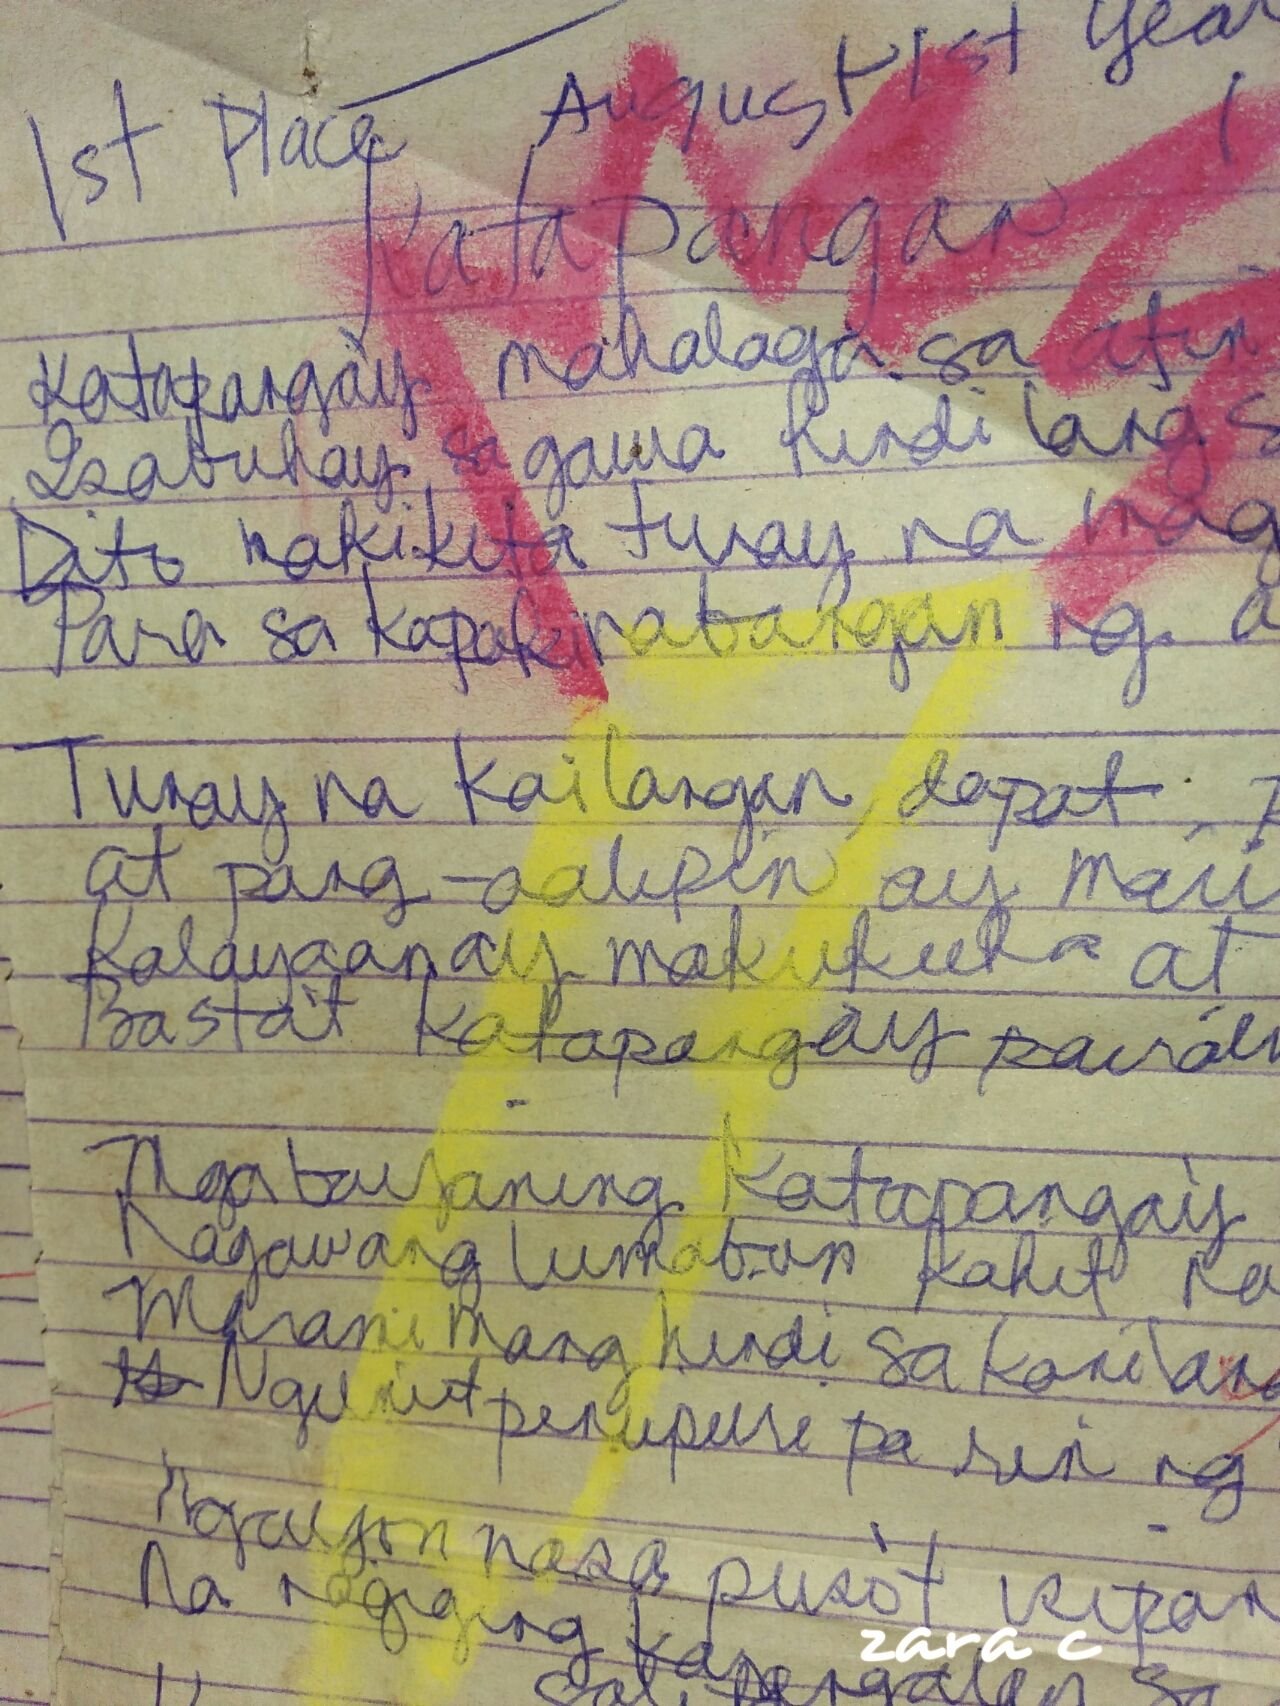 1st Place August 1st Year
Katapangan
Katapangay mahalaga sa atin
Isabuhay sa gawa hindi lang s
Dito makikita tunay na mag
Para sa kapakinabangan ng a
Tunay na kailangan, dapat, p
at pang-aalipin ay
Kalayaan ay makukuha at
Basta't katapangay pairalin
Mga bayaning katapangay
Nagawang lumaban kahit na
Marami mang hindi sa kanilang
Ngunit pinupuri pa rin ng
Ngayon nasa puso't isipan
Na naging
zara c